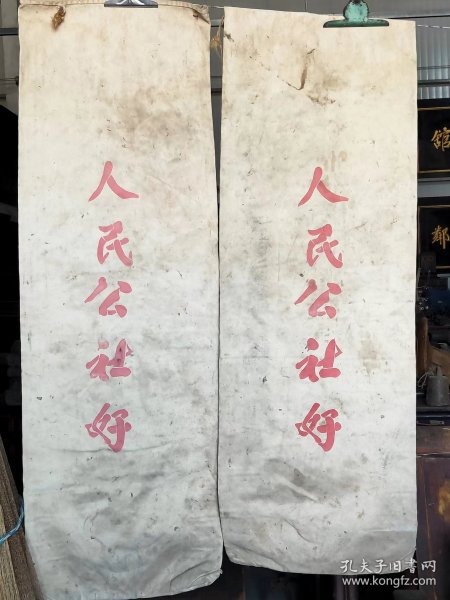 人民公社好
人民公社好
馆
鄰
孔夫子旧书网
www.kongfz.com